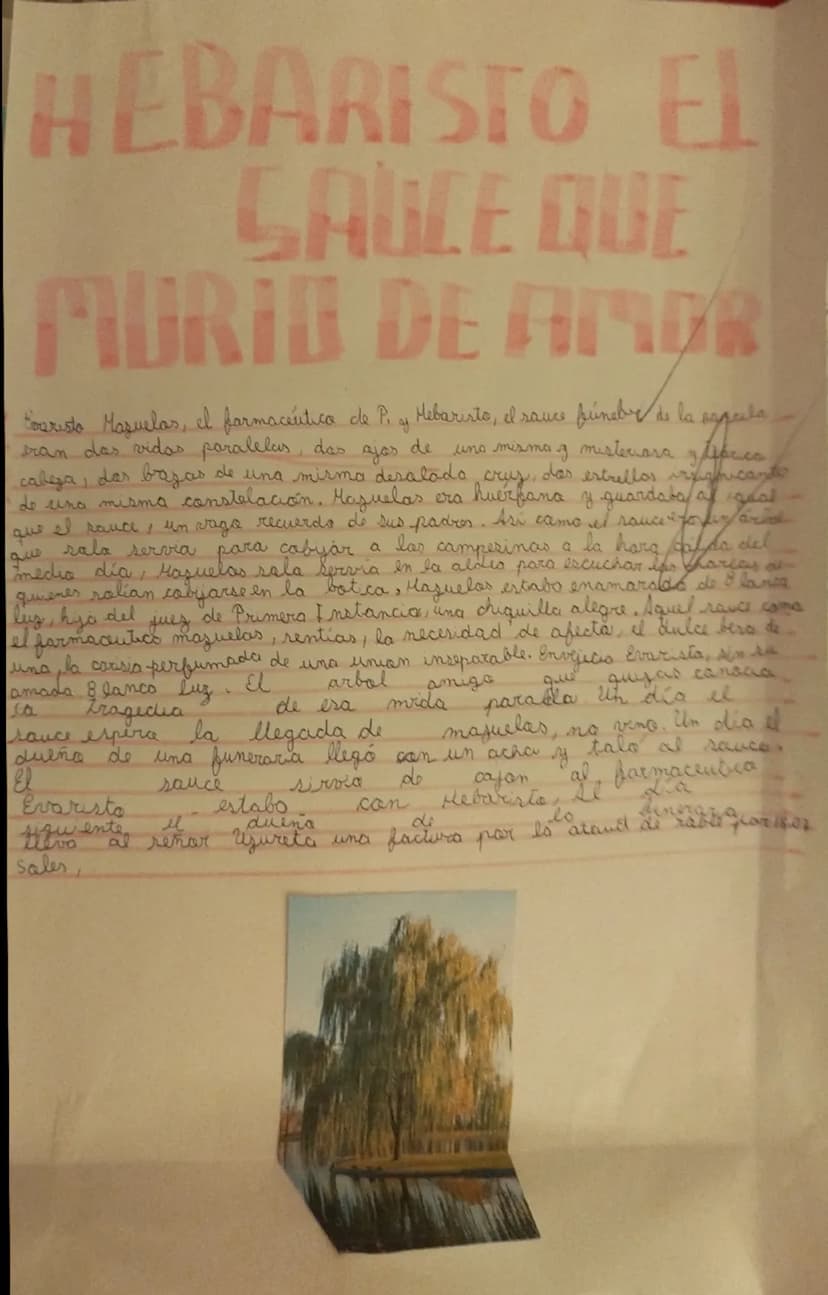 HEBARISTO EL
SAUCE QUE
MURIO DE AMOR
Evaristo Mazuelas, el farmacéutico de P. y Hebaristo, el sauce fúnebre de la parcela
eran dos vidas paralelas, dos ojos de una misma y misteriosa y
cabeza, dos brazos de una misma desolada cruz, dos estrellas insignificantes
de una misma constelación. Mazuelas era huérfano y guardaba al igual
que el sauce, un vago recuerdo de sus padres. Así como el sauce era árbol
que solo servía para cobijar a los campesinos a la hora cálida del
medio día, Mazuelas solo servía en la aldea para escuchar las charlas de
quienes solían cobijarse en la botica, Mazuelas estaba enamorado de Blanca
luz, hija del juez de Primera Instancia, una chiquilla alegre. Aquel sauce como
el farmaceutico mazuelas, sentías, la necesidad de afecto, el dulce beso de
una, la caricia perfumada de una unión inseparable. Envejecio Evaristo, sin su
amada Blanca luz. El arbol amigo que quizas conocia
la tragedia de esa muda paralela Un día el
sauce espera la llegada de mazuelas, no vino. Un día el
dueño de una funeraria llegó con un acha y talo al sauce.
El sauce sirvio de cajon al farmaceutico
Evaristo estaba con Hebaristo, El día
siguiente el dueño de la funeraria
llevo al señor Uzureta una factura por lo ataud de sauce por
Soles,